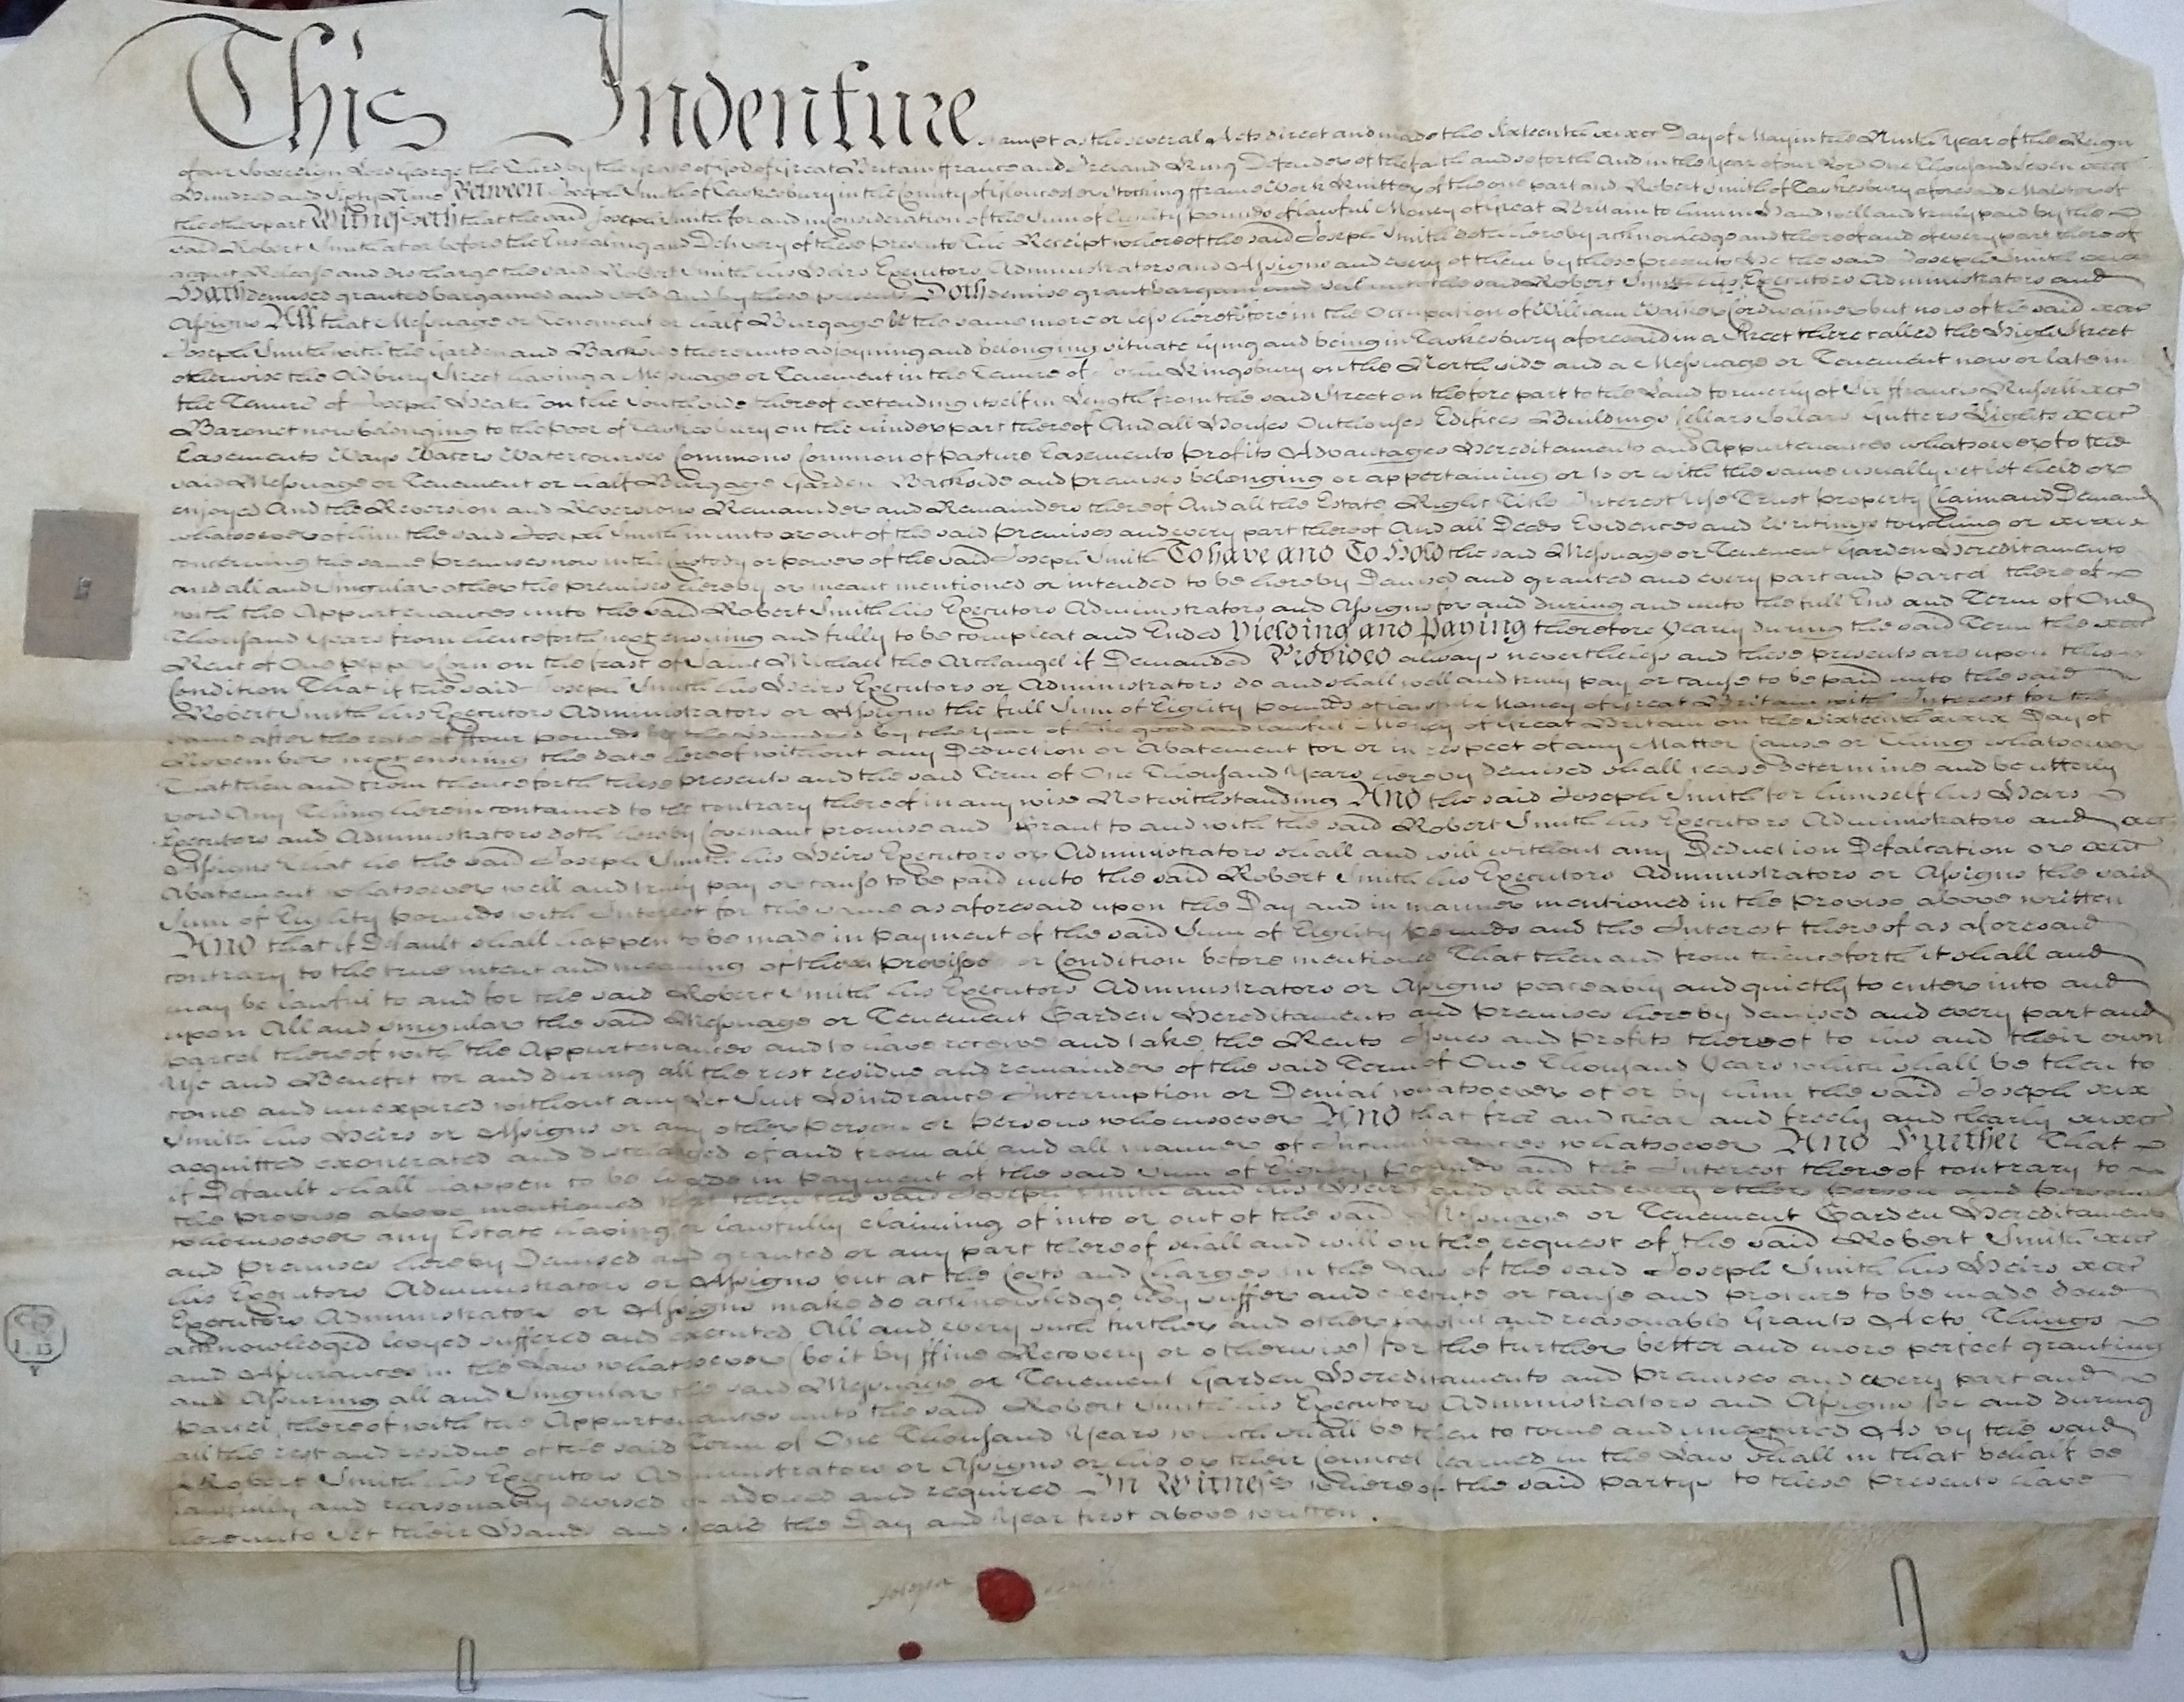 This Indenture stampt as the several Acts direct and made the Sixteenth Day of May in the Ninth Year of the Reign
of our Sovereign Lord George the Third by the Grace of God of Great Britain ffrance and Ireland King Defender of the faith and so forth And in the Year of our Lord One Thousand Seven
Hundred and Sixty Nine Between Joseph Smith of Tewkesbury in the County of Gloucester Stocking fframe Work Knitter of the one part and Robert Smith of Tewkesbury aforesaid Malster of
the other part Witnesseth that the said Joseph Smith for and in Consideration of the Sum of Eighty pounds of lawful Money of Great Britain to him in Hand well and truly paid by the
said Robert Smith at or before the Ensealing and Delivery of these Presents The Receipt whereof the said Joseph Smith doth hereby acknowledge and thereof and of every part thereof
acquit Release and discharge the said Robert Smith his Heirs Executors Administrators and Assigns and every of them by these presents He the said Joseph Smith
Hath demised granted bargained and sold And by these presents Doth demise grant bargain and sell unto the said Robert Smith his Executors Administrators and
Assigns All that Messuage or Tenement or half Burgage be the same more or less heretofore in the Occupation of William Walker Cordwainer but now of the said
Joseph Smith with the Garden and Backside thereunto adjoyning and belonging situate lying and being in Tewkesbury aforesaid in a Street there called the High Street
otherwise the Oldbury Street having a Messuage or Tenement in the Tenure of Kingsbury on the North side and a Messuage or Tenement now or late in
the Tenure of Joseph Heath on the South side thereof extending itself in Length from the said Street on the fore part to the Land formerly of Sir ffrancis Russell
Baronet now belonging to the Poor of Tewkesbury on the hinder part thereof And all Houses Outhouses Edifices Buildings Cellars Sollars Gutters Lights
Easements Ways Waters Watercourses Commons Common of Pasture Easements Profits Advantages Hereditaments and Appurtenances whatsoever to the
said Messuage or Tenement or half Burgage Garden Backside and premises belonging or appertaining or to or with the same usually set let held or
enjoyed And the Reversion and Reversions Remainder and Remainders thereof And all the Estate Right Title Interest Use Trust property Claim and Demand
whatsoever of him the said Joseph Smith in unto or out of the said premises and every part thereof And all Deeds Evidences and Writings touching or
concerning the same premises now in the custody or power of the said Joseph Smith To have and To Hold the said Messuage or Tenement Garden Hereditaments
and all and Singular other the premises hereby or meant mentioned or intended to be hereby Demised and granted and every part and parcel thereof
with the Appurtenances unto the said Robert Smith his Executors Administrators and Assigns for and during and unto the full End and Term of One
Thousand Years from henceforth next ensuing and fully to be compleat and Ended Yielding and Paying therefore Yearly during the said Term the
Rent of One pepper Corn on the feast of Saint Michael the Archangel if Demanded Provided always nevertheless and these presents are upon this
Condition That if the said Joseph Smith his Heirs Executors or Administrators do and shall well and truly pay or cause to be paid unto the said
Robert Smith his Executors Administrators or Assigns the full Sum of Eighty pounds of lawful Money of Great Britain with Interest for the
same after the rate of ffour pounds by the Hundred by the Year of like good and lawful Money of Great Britain on the Sixteenth Day of
November next ensuing the date hereof without any Deduction or Abatement for or in respect of any Matter Cause or Thing whatsoever
That then and from thenceforth these presents and the said Term of One Thousand Years hereby demised shall cease determine and be utterly
void Any Thing herein contained to the contrary thereof in any wise Notwithstanding And the said Joseph Smith for himself his Heirs
Executors and Administrators doth hereby Covenant promise and Grant to and with the said Robert Smith his Executors Administrators and
Assigns That he the said Joseph Smith his Heirs Executors or Administrators shall and will without any Deduction Defalcation or
Abatement whatsoever well and truly pay or cause to be paid unto the said Robert Smith his Executors Administrators or Assigns the said
Sum of Eighty pounds with Interest for the same as aforesaid upon the Day and in manner mentioned in the Proviso above written
And that if Default shall happen to be made in payment of the said Sum of Eighty pounds and the Interest thereof as aforesaid
contrary to the true intent and meaning of the Proviso or Condition before mentioned That then and from thenceforth it shall and
may be lawful to and for the said Robert Smith his Executors Administrators or Assigns peaceably and quietly to enter into and
upon All and singular the said Messuage or Tenement Garden Hereditaments and Premises hereby demised and every part and
parcel thereof with the Appurtenances and to have receive and take the Rents Issues and Profits thereof to his and their own
Use and Benefit for and during all the rest residue and remainder of the said Term of One Thousand Years which shall be then to
come and unexpired without any Let Suit Hindrance Interruption or Denial whatsoever of or by him the said Joseph
Smith his Heirs or Assigns or any other Person or Persons whomsoever And that free and clear and freely and clearly
acquitted exonerated and discharged of and from all and all manner of Incumbrances whatsoever And Further That
if Default shall happen to be made in Payment of the said Sum of Eighty Pounds and the Interest thereof contrary to
the Proviso above mentioned that then the said Joseph Smith and his Heirs and all and every other Person and Persons
whomsoever any Estate having or lawfully claiming of into or out of the said Messuage or Tenement Garden Hereditaments
and Premises hereby Demised and granted or any part thereof shall and will on the request of the said Robert Smith
his Executors Administrators or Assigns but at the Costs and Charges in the Law of the said Joseph Smith his Heirs
Executors Administrators or Assigns make do acknowledge levy suffer and execute or cause and procure to be made done
acknowledged levyed suffered and executed All and every such further and other lawful and reasonable Grants Acts Things
and Assurances in the Law whatsoever (be it by ffine Recovery or otherwise) for the further better and more perfect granting
and Assuring all and Singular the said Messuage or Tenement Garden Hereditaments and Premises and every part and
Parcel thereof with the Appurtenances unto the said Robert Smith his Executors Administrators and Assigns for and during
all the rest and residue of the said Term of One Thousand Years which shall be then to come and unexpired As by the said
Robert Smith his Executors Administrators or Assigns or his or their Councel learned in the Law shall in that behalf be
lawfully and reasonably devised or advised and required In Witness whereof the said Partys to these Presents have
hereunto set their Hands and Seals the Day and Year first above written.
Joseph Smith